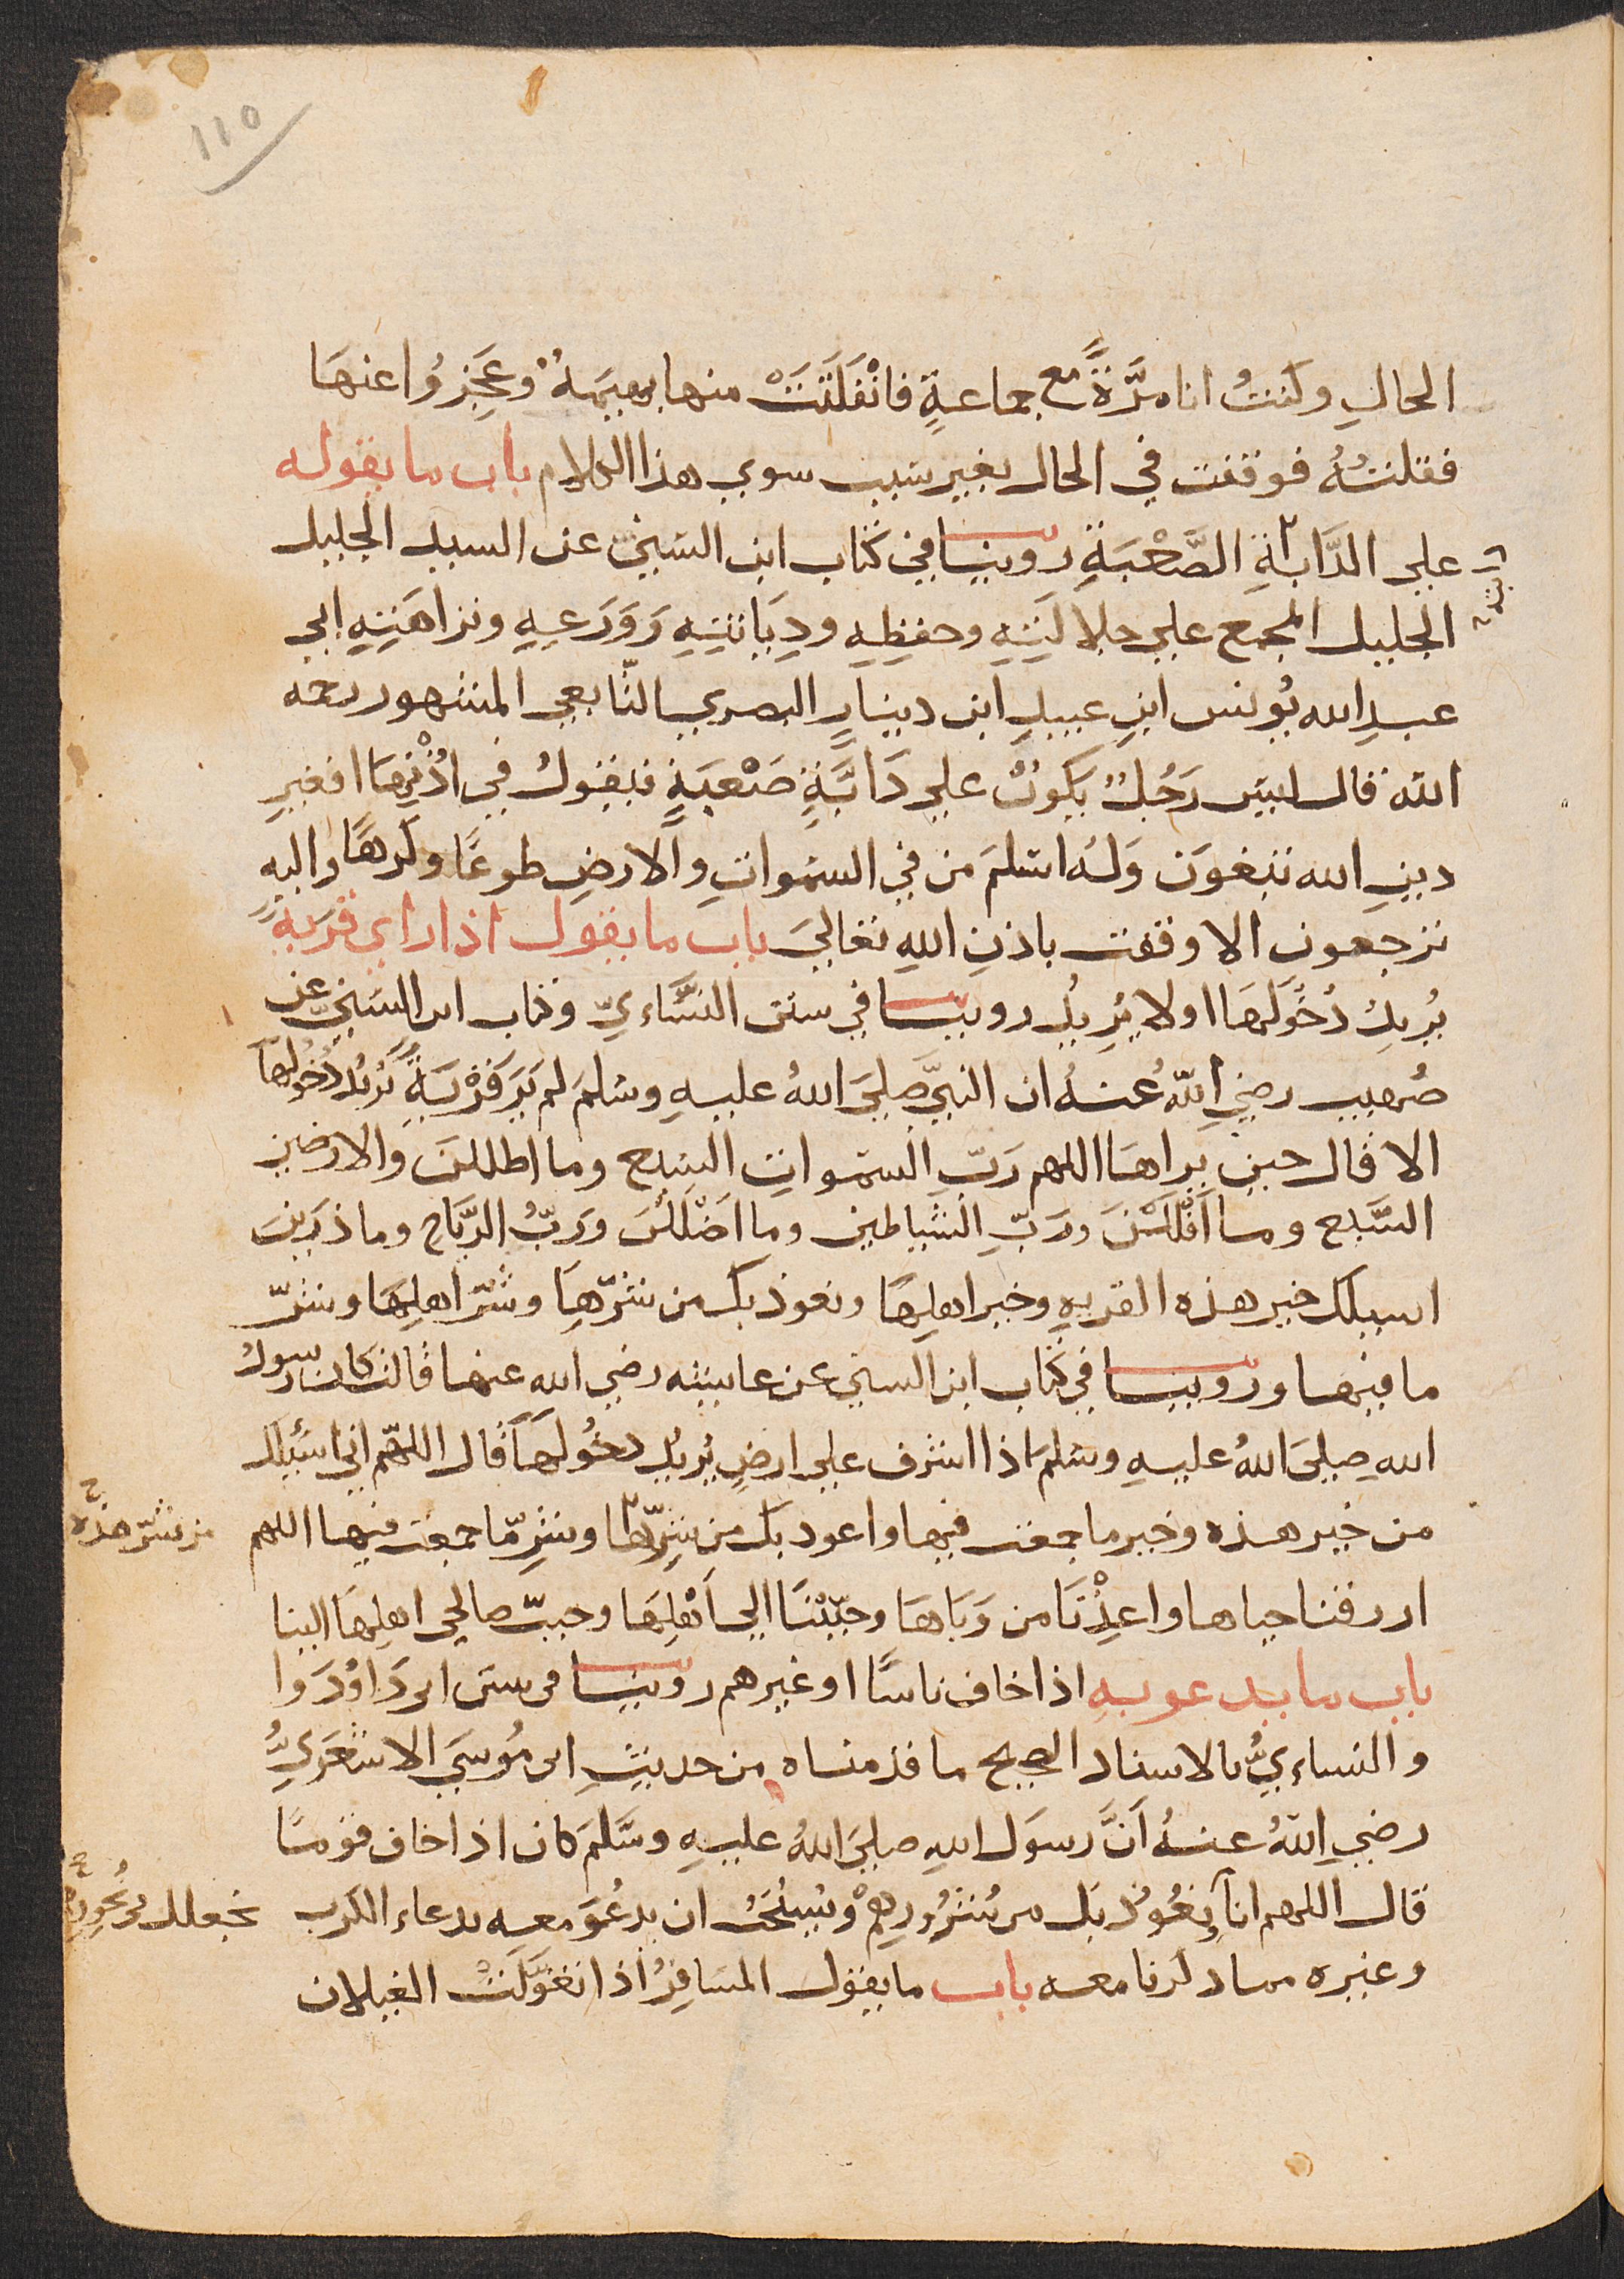 ١١٥
الحالِ وكنتُ انا مرَّةً مع جماعةٍ فانْفَلَتَتْ منها بهيمَةٌ وعَجِزوُا عنهَا
فقلتُهُ فوقفت في الحال بغير سبب سوي هذا الكلام باب ما يقوله
علي الدَّابةِ الصَّعْبَةِ روينا في كتاب ابن السّني عن السيد الجليل
الجليل المجمع علي جلالَتِهِ وحفظِهِ ودِيَانتِهِ وَوَرَعِهِ ونزاهَتِهِ ابي
عبدِ الله يُونس ابنِ عبيدِ ابن دينارٍ البصري التّابعي المشهور رحمه
الله قال ليسَ رَجُلٌ يَكونُ علي دَابَّةٍ صَعْبَةٍ فيقولُ في اذْنِهَا افغيرِ
دينِ الله تبغونَ وَلَهُ اسْلمَ من في السَّمواتِ والارضِ طوعًا وكرهًا واليه
ترجعون الا وقفت باذنِ اللهِ تعاليَ باب ما يقول اذا راي قريةً
يُريدُ دُخُولَهَا اولا يُرِيدُ روينا في سنن النَّسَاءيِّ وكتاب ابن السّنيِّ عن
صُهيب رضي اللهُ عنهُ ان النبيَّ صليَ اللهُ عليهِ وسَلمَ لم يَرَ قرْيَةً يُريُد دُخُولهَا
الا قال حين يراهَا اللهم رَبّ السمواتِ السّبع وما اظللنَ والارضين
السَّبع وما اَقْلَلْنَ ورَبّ الشياطين وما اَضْلَلْنَ ورَبُّ الرّيَاح وما ذرَيْنَ
اسيلك خير هذه القريهِ وخير اهلِهَا ونعوذ بك من شرّهَا وشرّ اهلِهَا وشرّ
ما فيها وروينا في كتاب ابن السني عن عايشه رضي الله عنها قالت كان رسولُ
اللهِ صليَ اللهُ عليهِ وسَلمَ اذا اشرف علي ارضٍ يُريُد دخُولَهَا قال اللهّم اني اسْيلك
من خير هذه وخير ما جمعت فيها واعوذ بك من شرّها وشرّ ما جمعت فيها اللهم
من شرّ هذه
ارزقنا حياها واعِذْنَا من وَبَاهَا وحَبّبْنَا الي اَهْلِهَا وحبّب صالحي اهلِهَا الينا
باب ما يدعوبهِ اذا خاف ناسًا او غيرهم روينا في سنن ابي دَاوُدَ وا
والنساءيُّ بالاسناد الصحيح ما قدمناه من حديثِ ابي مُوسيَ الاشعَريِّ
رضي اللهُ عنهُ اَنَّ رسوَل اللهِ صليَ اللهُ عليهِ وسَّلمَ كان اذا خاف قومًا
قال اللهم انا نعُوُذ بك من شُرُورِهِمْ ويُسْتَحَبُّ ان يدعُوَ معه بدعاء الكرب
نجعلك في نُحُورِهم
وغيره مماذكرنا معه باب ما يقول المسَافِرُ اذا تغوَّلَتْ الغيلان